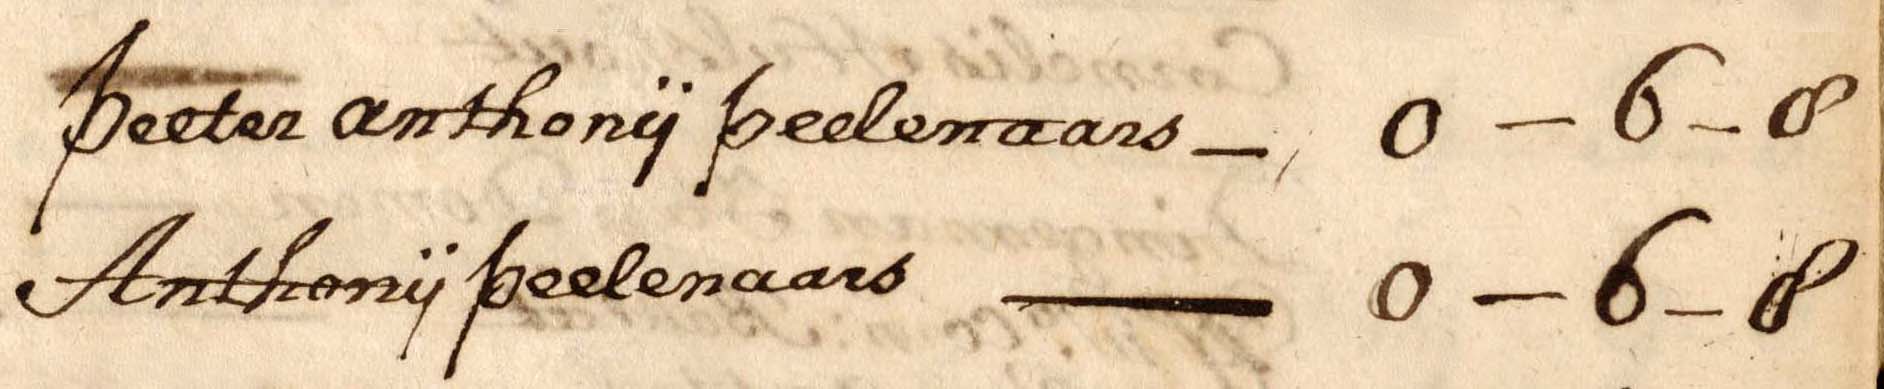 Peeter anthonij peelenaars — 0 — 6 — 8
Anthonij peelenaars — 0 — 6 — 8